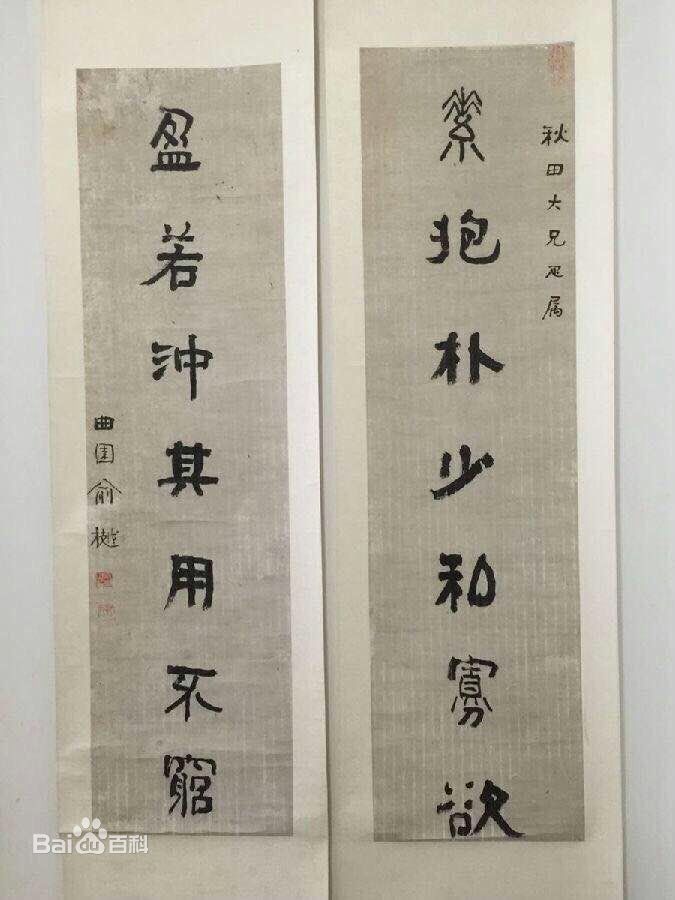 秋田大兄疋属
素抱朴少私寡欲
盈若沖其用不窮
曲園俞樾
Baidu百科